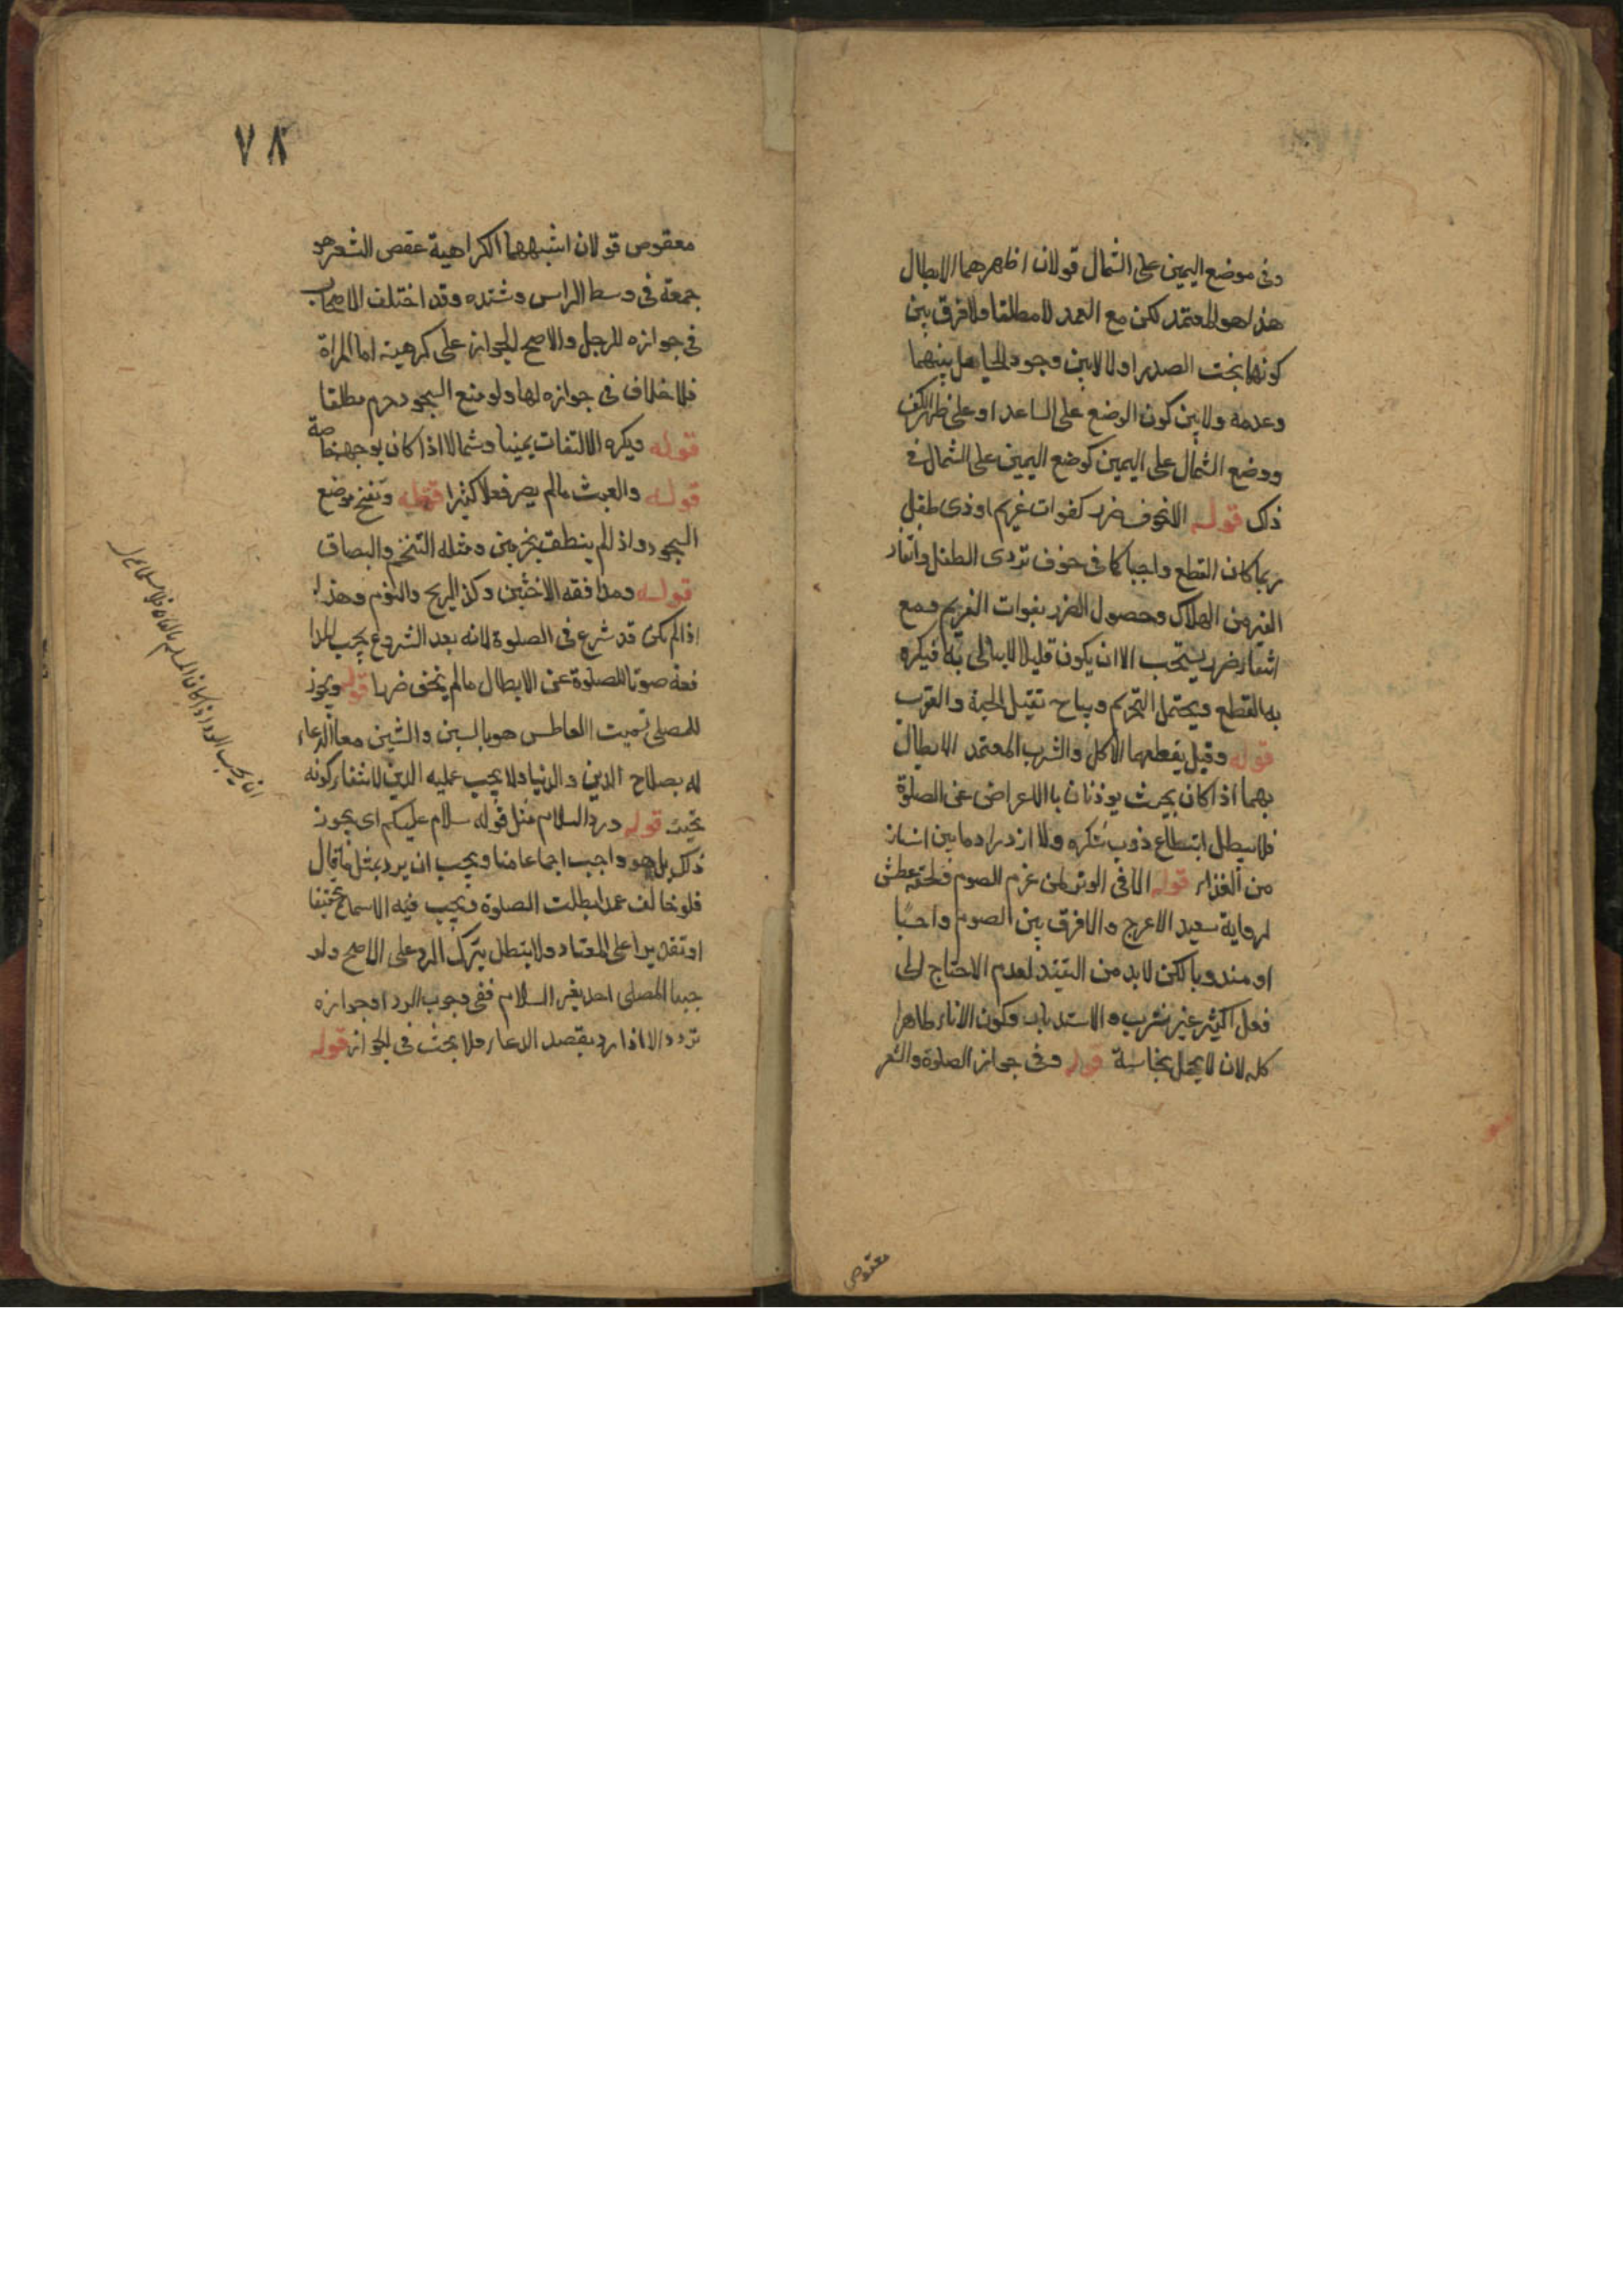 وفى موضع اليمين على الشمال قولان اظهرهما الابطال
هذا هو المعتمد لكن مع العمد لا مطلقا ولا فرق بين
كونها تحت الصدر اولا ولا بين وجود الحايل بينهما
وعدمه ولا بين كون الوضع على الساعد او على ظهر الكف
ووضع الشمال على اليمين كوضع اليمين على الشمال فى
ذلك قوله الا لخوف ضرر كفوات غريم او ذى طفل
ربما كان القطع واجبا كما فى خوف تردى الطفل وانقاذ
الغير من الهلاك وحصول الضرر بفوات الغريم ومع
انتفاء ضرر يستحب الا ان يكون قليلا لا يبالى به فيكره
به القطع ويحتمل التحريم ويباح تقتيل الحية والعقرب
قوله وقيل يقطعهما الاكل والشرب المعتمد الابطال
بهما اذا كان بحيث يوذنان بالاعراض عن الصلوة
فلا يبطل ابتلاع ذوب سكره ولا ازدراد ما بين اسنانه
من الغذاء قوله الا فى الوتر لمن عزم الصوم فلحقه عطش
لرواية سعيد الاعرج ولا فرق بين الصوم واجبا
او مندوبا لكن لا بد من التقييد لعدم الاحتاج الى
فعل اكثير غير شرب ولا استدبار وكون الاناء طاهرا
كله لان لا يحمل نجاسة قوله وفى جواز الصلوة والشعر
معقوص
٧٨
معقوص قولان اشبههما الكراهية عقص الشعر هو
جمعه فى وسط الراس وشده وقد اختلف الاصحاب
فى جوازه للرجل والاصح الجواز على كرهية اما المراة
فلا خلاف فى جوازه لها ولو منع السجود حرم مطلقا
قوله ويكره الالتفات يمينا وشمالا اذا كان بوجهه خاصة
قوله والعبث مالم يصر فعلا كثيرا قوله ونفخ موضع
السجود اذ لم ينطق بحرفين ومثله التنخم والبصاق
قوله ومدافعة الاخبثين وكذا الريح والنوم وهذا
اذا لم يكن قد شرع فى الصلوة لانه بعد الشروع يجب المدا
فعة صونا للصلوة عن الابطال مالم يخف ضررا قوله ويجوز
للمصلى تسميت العاطس هو بالسين والشين معا الدعاء
له بصلاح الدين والدنيا ولا يجب عليه الدين لانتفاء كونه
تحية قوله ورد السلام مثل قوله سلام عليكم اى يجوز
ذلك بل هو واجب اجماعا منا ويجب ان يرد بمثل ما قال
فلو خالف عمدا بطلت الصلوة ويجب فيه الاسماع تحقيقا
او تقديرا على المعتاد ولا تبطل بترك الرد على الاصح ولو
حيا المصلى احد بغير السلام ففى وجوب الرد او جوازه
تردد الا اذا رد بقصد الدعاء فلا بحث فى الجواز قوله
انما يجب الرد اذا كان المسلم بالغا